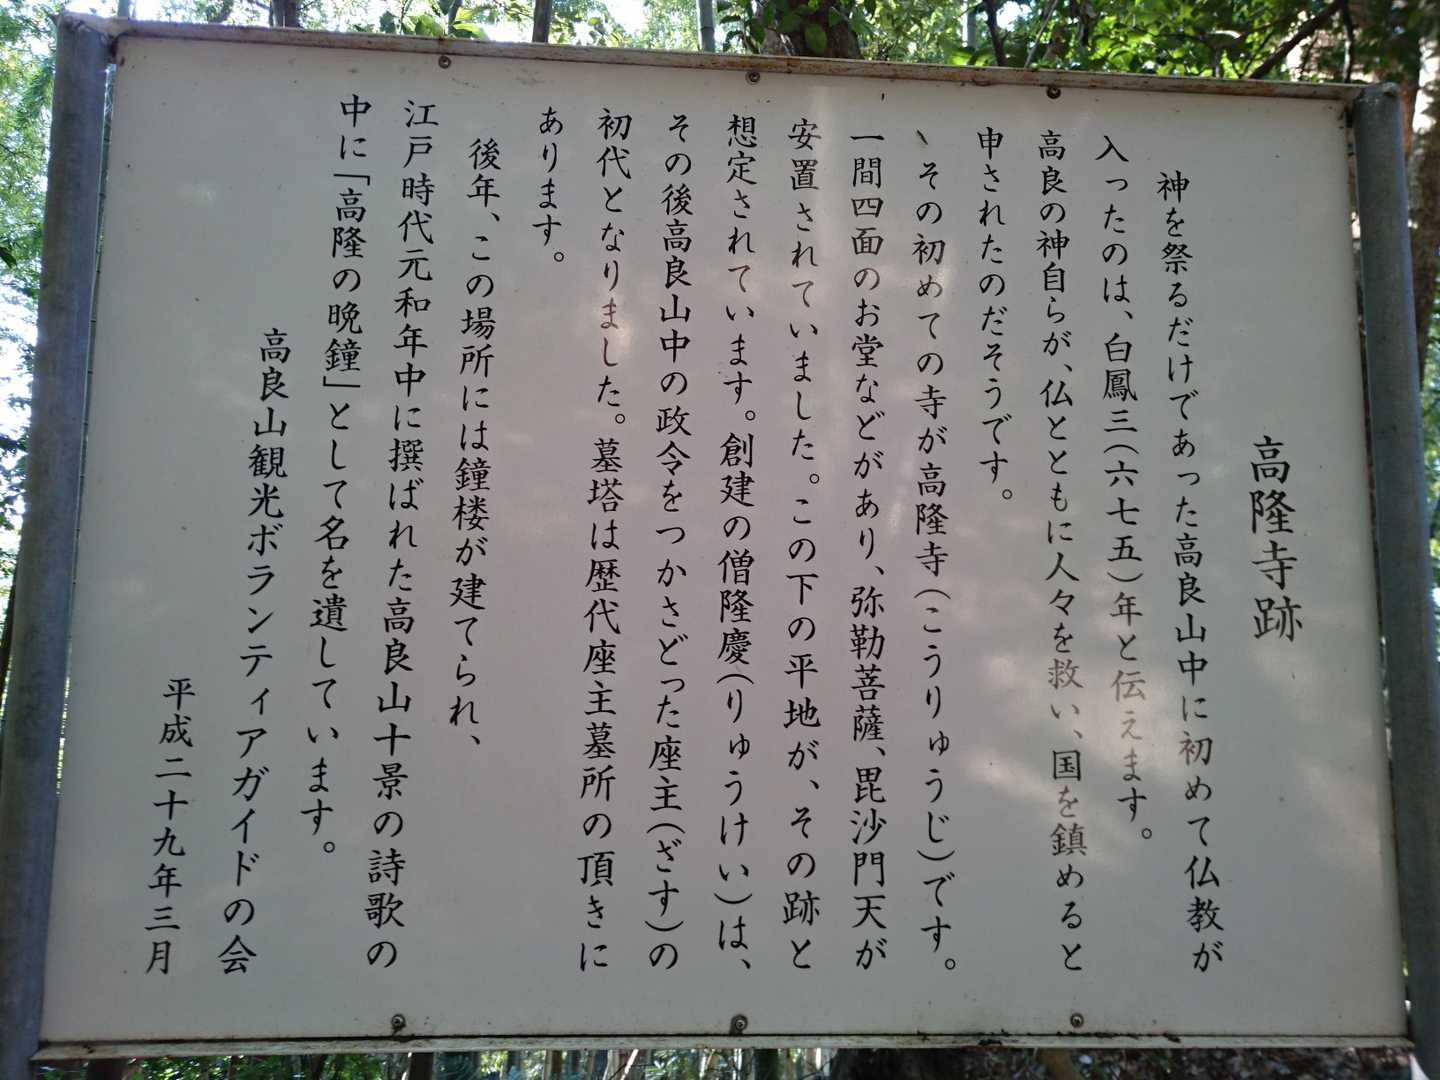 高隆寺跡
神を祭るだけであった高良山中に初めて仏教が
入ったのは、白鳳三(六七五)年と伝えます。
高良の神自らが、仏とともに人々を救い、国を鎮めると
申されたのだそうです。
、その初めての寺が高隆寺(こうりゅうじ)です。
一間四面のお堂などがあり、弥勒菩薩、毘沙門天が
安置されていました。この下の平地が、その跡と
想定されています。創建の僧隆慶(りゅうけい)は、
その後高良山中の政令をつかさどった座主(ざす)の
初代となりました。墓塔は歴代座主墓所の頂きに
あります。
後年、この場所には鐘楼が建てられ、
江戸時代元和年中に撰ばれた高良山十景の詩歌の
中に「高隆の晩鐘」として名を遺しています。
高良山観光ボランティアガイドの会
平成二十九年三月